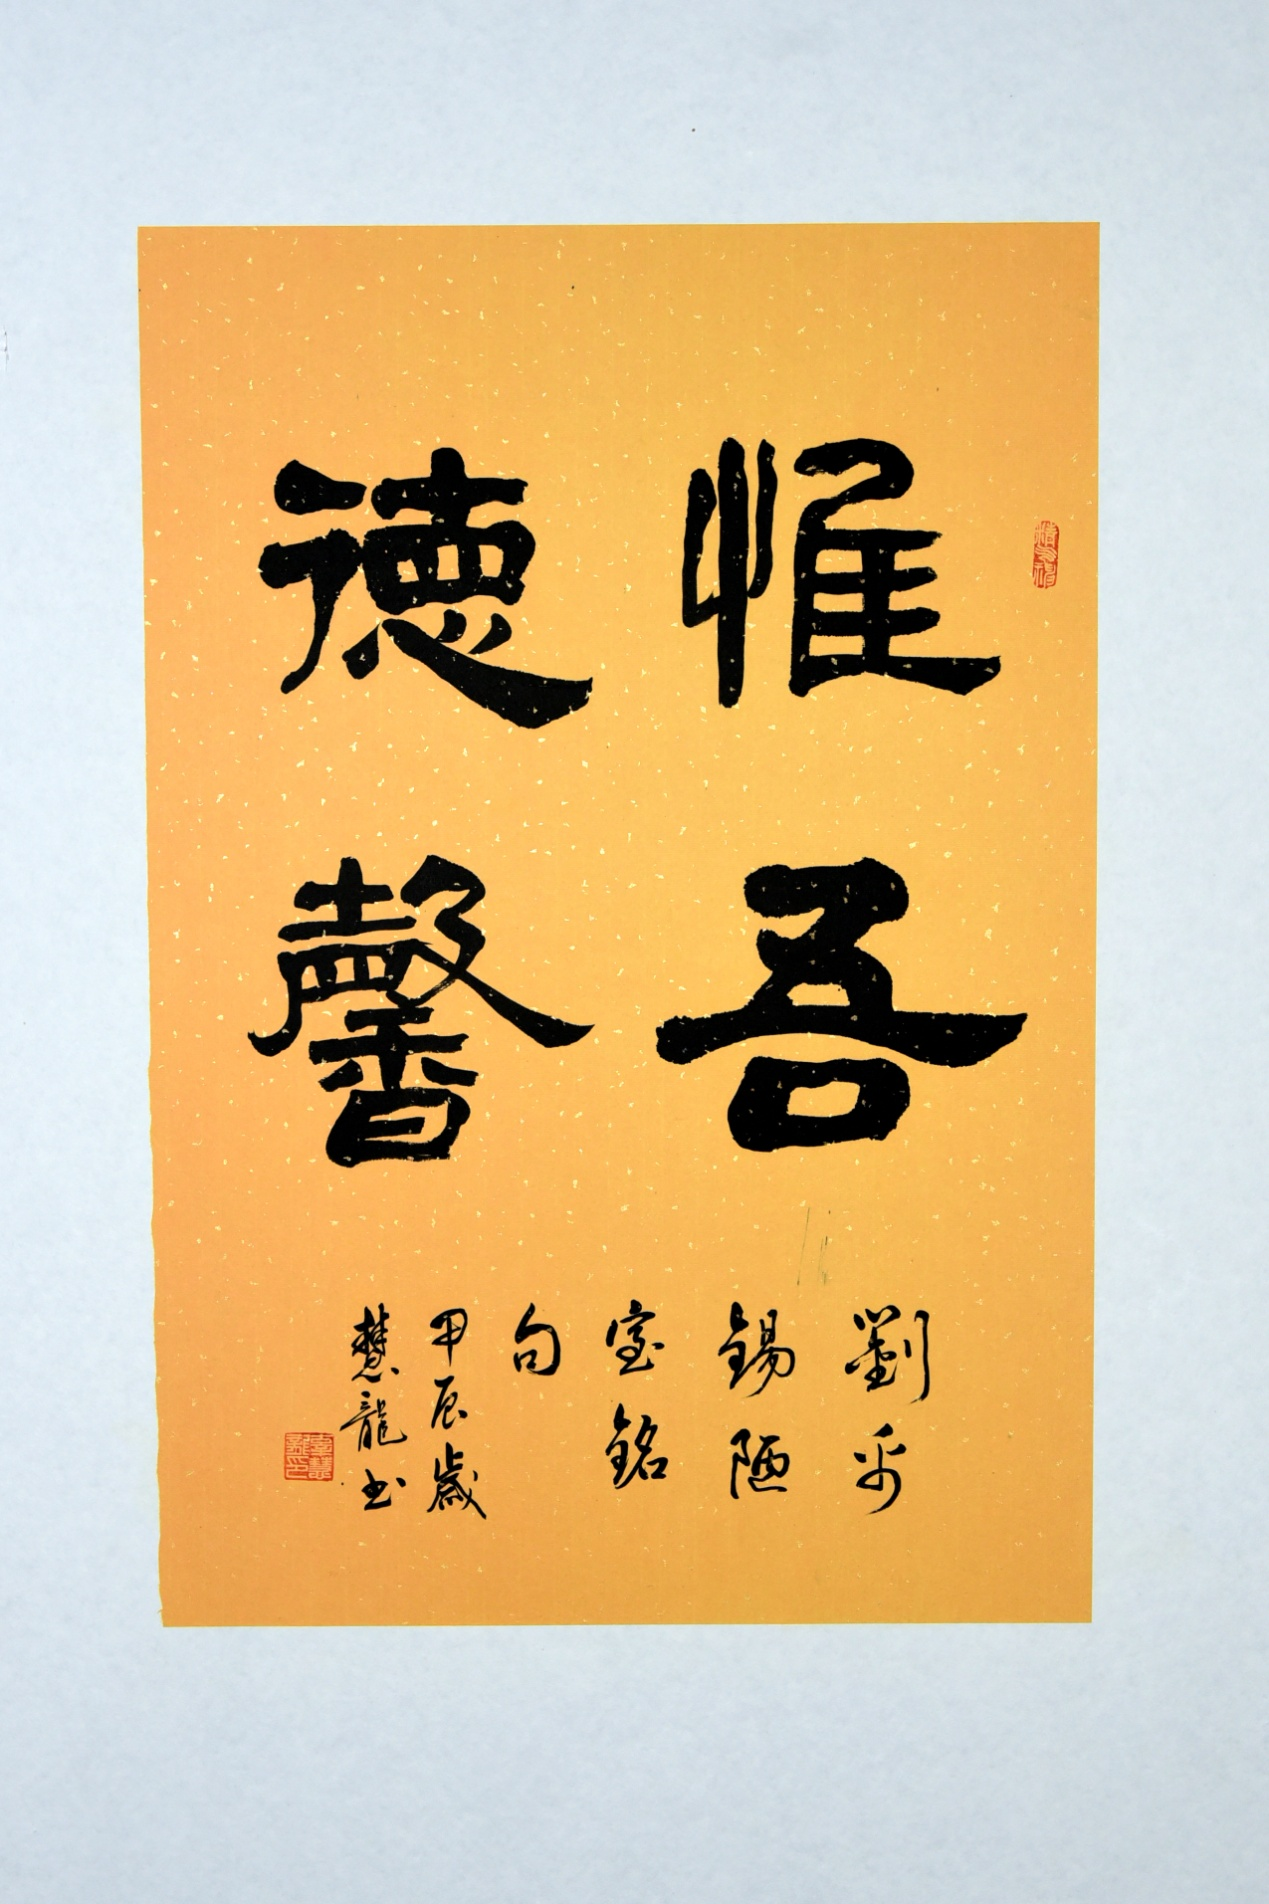 惟吾
德馨
劉禹
錫陋
室銘
句
甲辰歲
慧龍书
韋慧
龍印